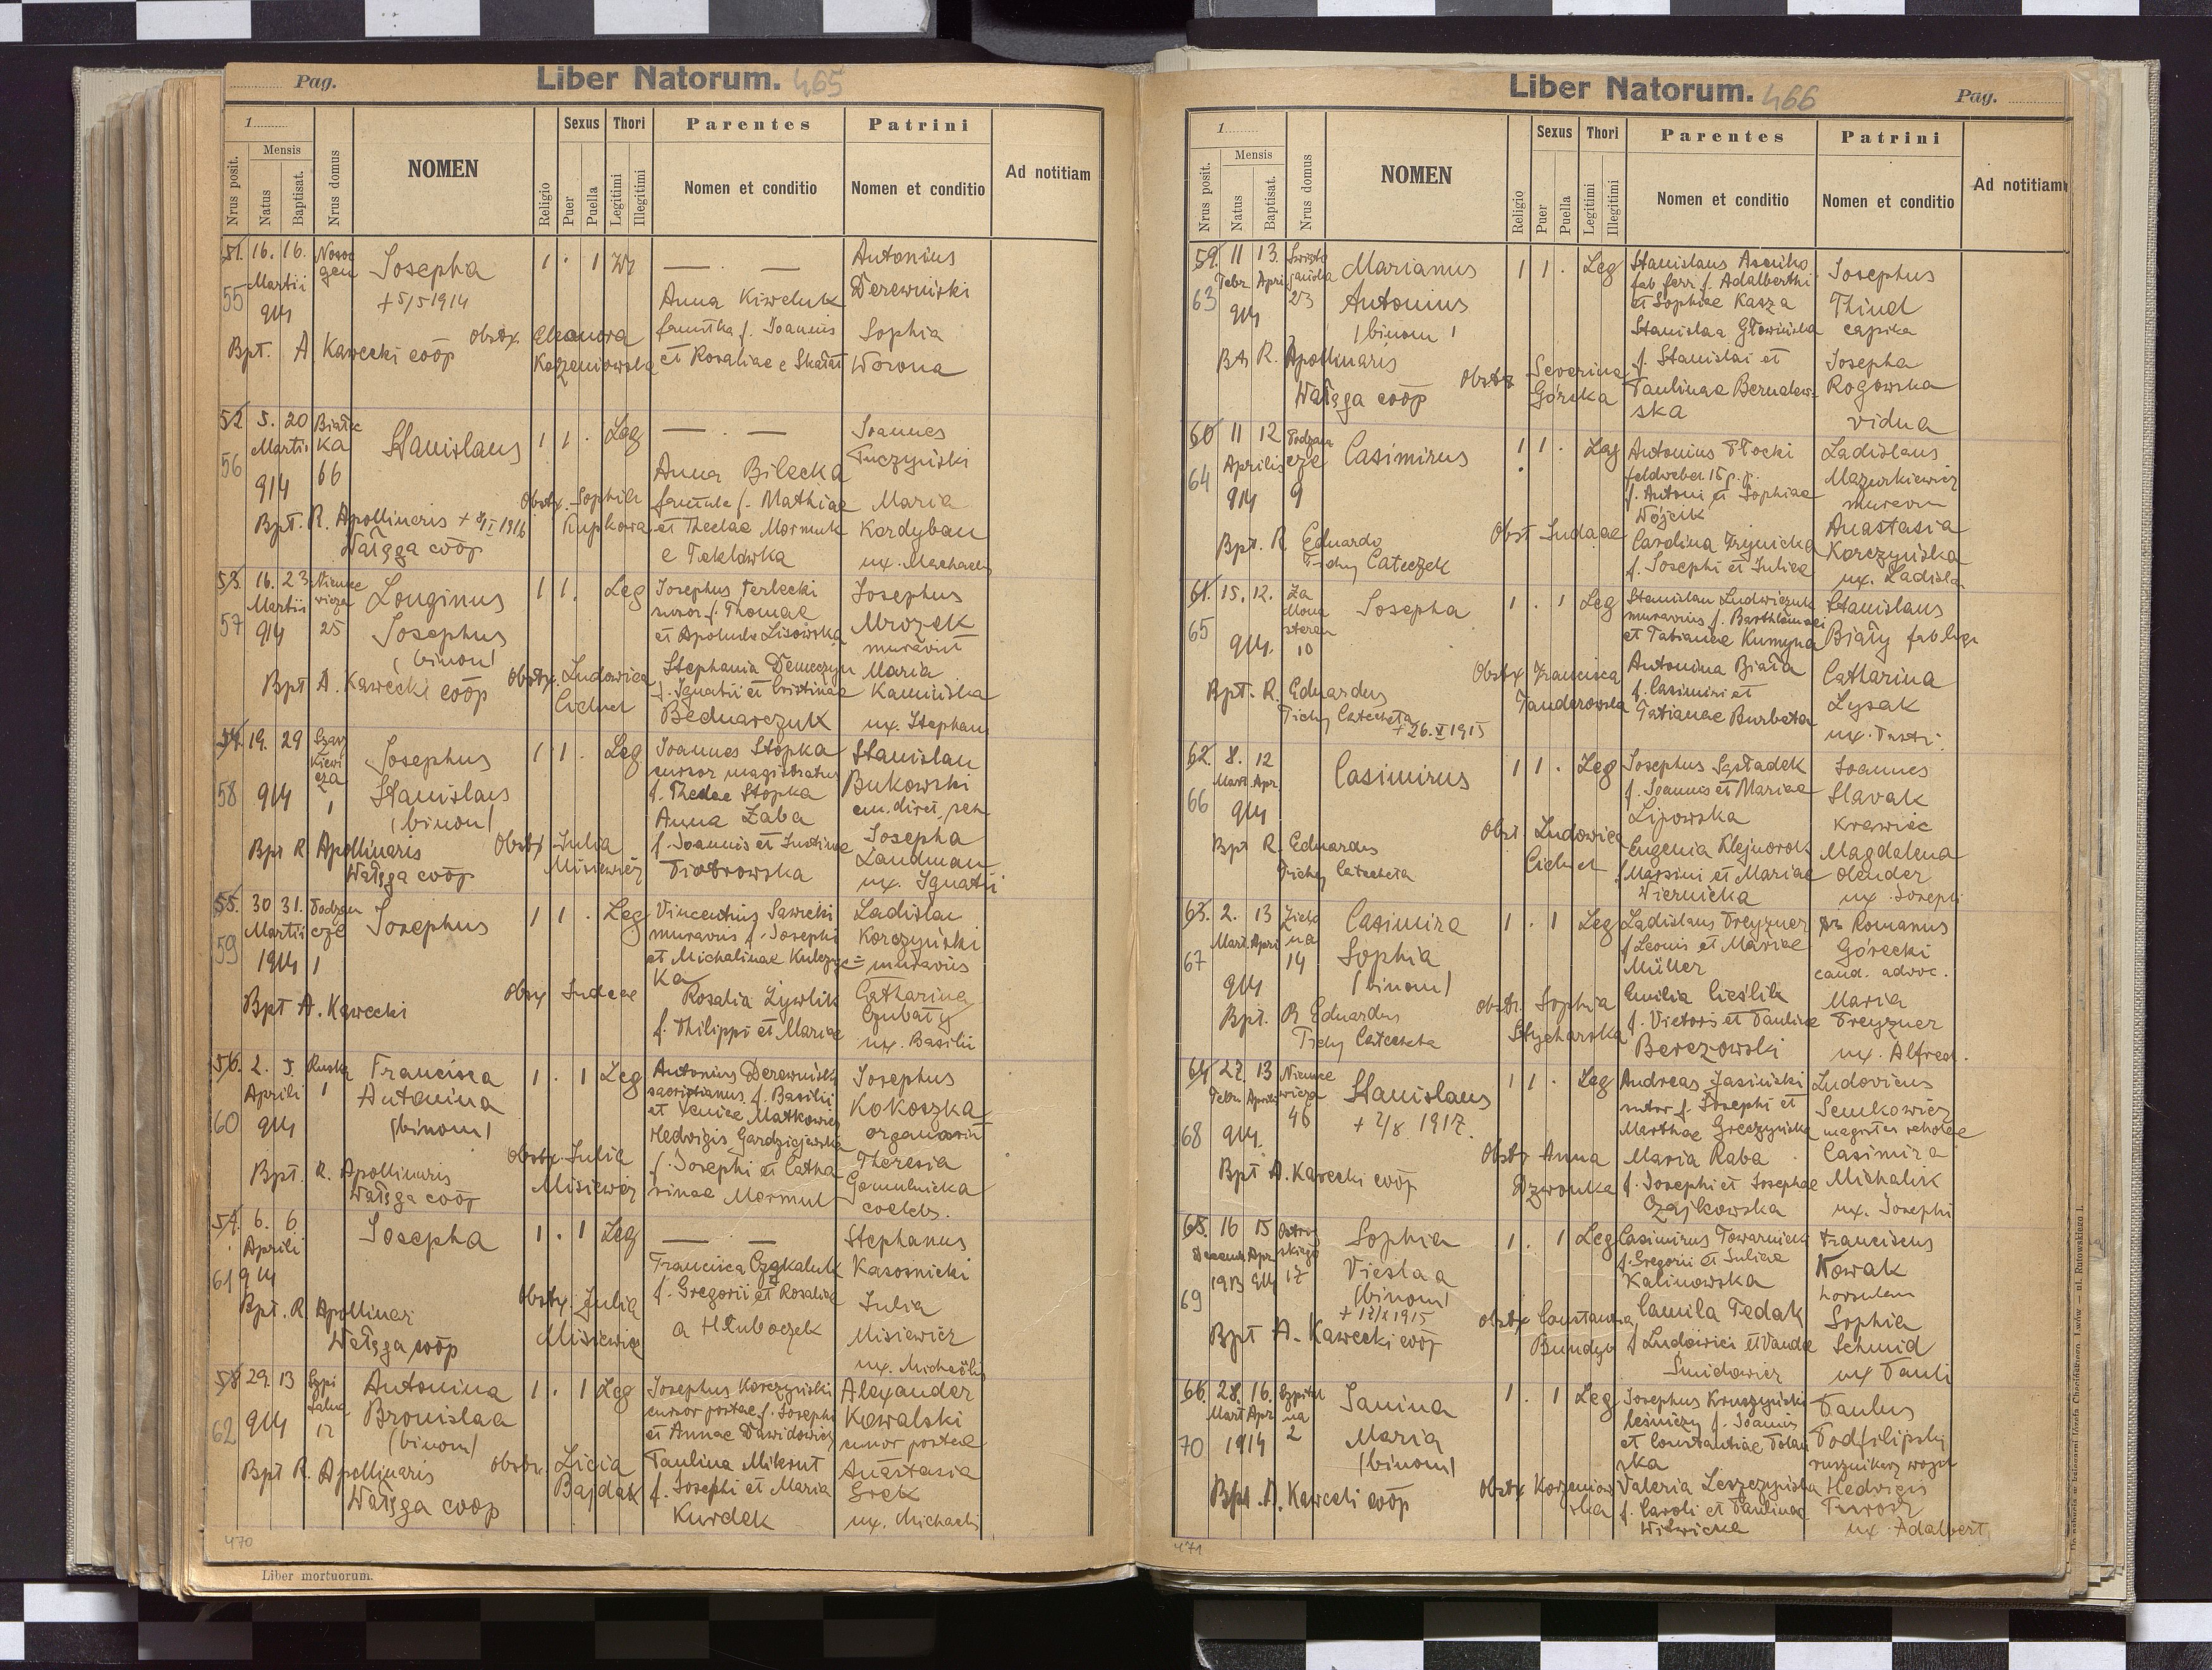 Pag.
Liber Natorum. 465
1
Mensis
Nrus posit.
Natus
Baptisat.
Nrus domus
NOMEN
Religio
Sexus
Puer
Puella
Thori
Legitimi
Illegitimi
Parentes
Nomen et conditio
Patrini
Nomen et conditio
Ad notitiam
51. 16. 16.
Martii
914
55
Josepha
+ 5/5 1914
1 . 1
Anna Kiweluk
famula f. Joannis
et Rosaliae e Skałat
Antonius
Derewniski
Sophia
Worona
Obstx. Eleonora
Korzeniowska
Bpt. A. Kawecki coop
52. 5. 20
Martii
914
56
66
Stanislaus
1 1 . Leg
Anna Bilecka
famula f. Mathiae
et Theclae Mormuk
e Teklówka
Joannes
Tuczyński
Maria
Kordyban
ux. Michaelis
Obstx. Sophia
Bpt. R. Apollinaris
Wałęga coop
53. 16. 23
Martii
914
57
25
Longinus
Josephus
(binom)
1 1 . Leg
Josephus Terlecki
sutor f. Thomae
et Apolonia Lisowska
Stephania Demeczyn
f. Ignatii et Cristinae
Bednarczuk
Josephus
Mrozek
Maria
Kamińska
ux. Stephani
Obstx. Ludovica
Cichet
Bpt A. Kawecki coop
54. 19. 29
914
58
1
Josephus
Stanislaus
(binom)
1 1 . Leg
Joannes Stopka
cursor magistratus
f. Theclae Stopka
Anna Żaba
f. Joannis et Justinae
Piotrowska
Stanislau
Bukowski
em. diret. sem
Josepha
Landman
ux. Ignatii
Obstx Julia
Misiewicz
Bpt R. Apollinaris
Wałęga coop
55. 30 31.
Martii
1914
59
Podzam
cze
1
Josephus
1 1 . Leg
Vincentius Sawicki
murarius f. Josephi
et Michalinae Kulczyc=
ka
Rosalia Żywlik
f. Philippi et Mariae
Ladislau
Korczyński
murarius
Catharina
Czubaty
ux. Basilii
Obstx Judaea
Bpt A. Kawecki
56. 2. 5.
Aprili
914
60
Ruska
1
Francisca
Antonina
(binom)
1 . 1 Leg
Antonius Derewniski
sacristianus f. Basilii
et Xeniae Matkowicz
Hedwigis Gardziejewska
f. Josephi et Catha
rinae Mormul
Josephus
Kokoszka
organarius
Theresia
Gomulnicka
coelebs.
Obstx. Julia
Misiewicz
Bpt. R. Apollinaris
Wałęga coop
57. 6. 6
Aprili
914
61
Josepha
1 . 1 Leg
Francisca Czykaluk
f. Gregorii et Rosaliae
a Hłuboczek
Stephanus
Kasośnicki
Julia
Misiewicz
ux. Michaëlis
Obstx. Julia
Misiewicz
Bpt. R Apollinar
Wałęga coop
58 29. 13
914
62
Szpi
talna
12
Antonina
Bronislaa
(binom)
1 . 1 Leg
Josephus Korczyński
cursor postae f. Josephi
et Annae Dawidowicz
Paulina Mikrut
f. Josephi et Maria
Kurdek
Alexander
Kowalski
cursor postae
Anastasia
Grek
ux. Michaeli
Obstx. Licia
Bajdak
Bpt R. Apollinaris
Wałęga coop
470
Liber mortuorum.
Liber Natorum. 466
Pag.
1
Mensis
Nrus posit.
Natus
Baptisat.
Nrus domus
NOMEN
Religio
Sexus
Puer
Puella
Thori
Legitimi
Illegitimi
Parentes
Nomen et conditio
Patrini
Nomen et conditio
Ad notitiam
59. 11 13.
Febr. Apri
914
63
23
Marianus
Antonius
(binom)
1 1 . Leg
fab ferri f. Adalberthi
et Sophiae Kasza
Stanislaa Głowińska
f. Stanislai et
Paulinae Bernalew=
ska
Josephus
Thind
Josepha
Rogowska
vidua
Obstx Severina
Górska
Bpt R. Apollinaris
Wałęga coop
60 11 12
Aprilis
914
64
Podzam
cze
9
Casimirus
1 1 . Leg
Antonius Płocki
feldweber 15 p. p.
f. Antoni et Sophiae
Wójcik
Carolina Trynicka
f. Josephi et Juliae
Ladislaus
Mazurkiewicz
Anastasia
Korczyńska
ux. Ladisla
Obst Judaae
Bpt. R Eduardo
Tichy Cateczek
61. 15. 12.
914.
65
Za
Mona
steren
10
Josepha
1 . 1 Leg
Stanislau Ludwiczuk
murarius f. Barthlomaei
et Tatianae Kumyna
Antonina Biała
f. Casimiri et
Tatianae Burbeta
Stanislaus
Biały
Catharina
Łysak
Obstx Francisca
Fanderowska
Bpt. R. Eduardus
Tichy Catecheta
+ 26. X 1915
62. 8. 12
Mart Apr
914
66
Casimirus
1 1 . Leg
Josephus Sąsładek
f. Joannis et Mariae
Lipowska
Eugenia Klejnorok
f. Marsini et Mariae
Wiernicka
Joannes
Slavak
krawiec
Magdalena
Olender
ux. Joseph
Obst. Ludovica
Cichet
Bpt R. Eduardus
Tichy Catecheta
63. 2. 13
Mart. Apri
914
67
14
Casimira
Sophia
(binom)
1 . 1 Leg
Ladislaus Freyzner
f. Leonis et Mariae
Müller
Emilia Cieślik
f. Victoris et Paulinae
Berezowski
Romanus
Górecki
cand. advoc.
Maria
Freyzner
ux. Alfred.
Obstr. Sophia
Stycharska
Bpt. R Eduardus
Tichy Catecheta
64 27. 13
Febr. Aprili
914.
68
46
Stanislaus
+ 2/8 1917.
1 1 . Leg
Andreas Jasiński
sutor f. Josephi et
Marthae Greczyńska
Maria Raba
f. Josephi et Josephae
Czajkowska
Ludovicus
Semkowicz
magister scholae
Casimira
Michalik
ux. Josephi
Obstx Anna
Dzwonka
Bpt A. Kawecki coop
65. 16 15
Decemr Apr.
1913 914
69
Ostrog
skiego
17
Sophia
Vieslaa
(binom)
+ 12/X 1915
1 . 1 Leg
Casimirus Towarnicki
f. Gregorii et Juliae
Kalinowska
Camila Pedak
f Ludovici et Vandae
Śmidowicz
Franciscus
Nowak
Sophia
Schmid
ux Pauli
Obstx Constantia
Bundyo
Bpt A. Kawecki coop
66. 28. 16.
Mart Apr
1914
70
Szpital
na
2
Janina
Maria
(binom)
1 . 1 Leg
Josephus Kruszyński
leśniczy f. Joannis
et Constantiae Polań
ska
Valeria Leszczyńska
f. Caroli et Paulinae
Witwicka
Paulus
Podfilipsky
rusznikarz wojsk
Hedvigis
Turosz
ux. Adalbert
Obstx Korzeniow
ska
Bpt. A. Kawecki coop
471